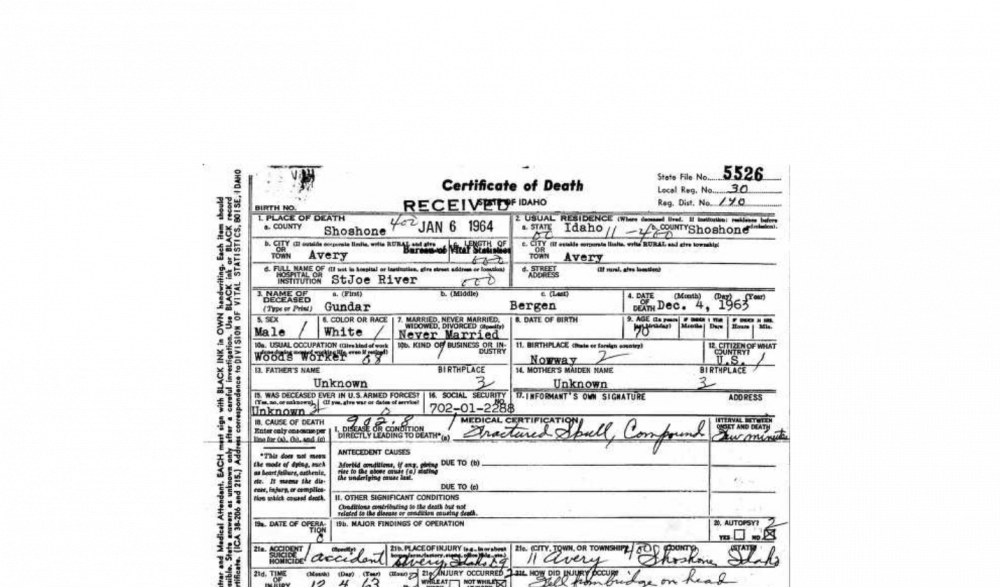 State File No. 5526
Certificate of Death
Local Reg. No. 30
STATE OF IDAHO
Reg. Dist. No. 140
BIRTH NO.
RECEIVED
1. PLACE OF DEATH
2. USUAL RESIDENCE (Where deceased lived. If institution: residence before admission).
a. COUNTY Shoshone
JAN 6 1964
a. STATE Idaho b. COUNTY Shoshone
b. CITY (If outside corporate limits, write RURAL and give
c. LENGTH OF
Bureau of Vital Statistics
c. CITY (If outside corporate limits, write RURAL and give township)
OR TOWN Avery
OR TOWN Avery
d. FULL NAME OF (If not in hospital or institution, give street address or location)
HOSPITAL OR INSTITUTION StJoe River
d. STREET ADDRESS (If rural, give location)
3. NAME OF DECEASED (Type or Print)
a. (First) b. (Middle) c. (Last)
Gundar Bergen
4. DATE OF DEATH (Month) (Day) (Year)
Dec. 4, 1963
5. SEX
Male
6. COLOR OR RACE
White
7. MARRIED, NEVER MARRIED, WIDOWED, DIVORCED (Specify)
Never Married
8. DATE OF BIRTH
9. AGE (In years last birthday) Months Days Hours Min.
70
10a. USUAL OCCUPATION (Give kind of work
Woods Worker
10b. KIND OF BUSINESS OR INDUSTRY
11. BIRTHPLACE (State or foreign country)
Nowway
12. CITIZEN OF WHAT COUNTRY?
U.S.
13. FATHER'S NAME BIRTHPLACE
Unknown
14. MOTHER'S MAIDEN NAME BIRTHPLACE
Unknown
15. WAS DECEASED EVER IN U.S. ARMED FORCES?
(Yes, no, or unknown) (If yes, give war or dates of service)
Unknown
16. SOCIAL SECURITY NO.
702-01-2288
17. INFORMANT'S OWN SIGNATURE ADDRESS
18. CAUSE OF DEATH
Enter only one cause per line for (a), (b), and (c)
902.8
MEDICAL CERTIFICATION
I. DISEASE OR CONDITION DIRECTLY LEADING TO DEATH* (a) Fractured Skull, Compound
INTERVAL BETWEEN ONSET AND DEATH
few minutes
*This does not mean the mode of dying, such as heart failure, asthenia, etc. It means the disease, injury, or complication which caused death.
ANTECEDENT CAUSES
Morbid conditions, if any, giving rise to the above cause (a) stating the underlying cause last.
DUE TO (b)
DUE TO (c)
II. OTHER SIGNIFICANT CONDITIONS
Conditions contributing to the death but not related to the disease or condition causing death.
19a. DATE OF OPERATION
19b. MAJOR FINDINGS OF OPERATION
20. AUTOPSY?
YES NO
21a. ACCIDENT SUICIDE HOMICIDE (Specify)
accident
21b. PLACE OF INJURY
21c. (CITY, TOWN, OR TOWNSHIP) (COUNTY) (STATE)
Avery Shoshone Idaho
21d. TIME OF INJURY (Month) (Day) (Year) (Hour)
12 4 63
21e. INJURY OCCURRED
WHILE AT NOT WHILE
21f. HOW DID INJURY OCCUR?
Fell from bridge on head